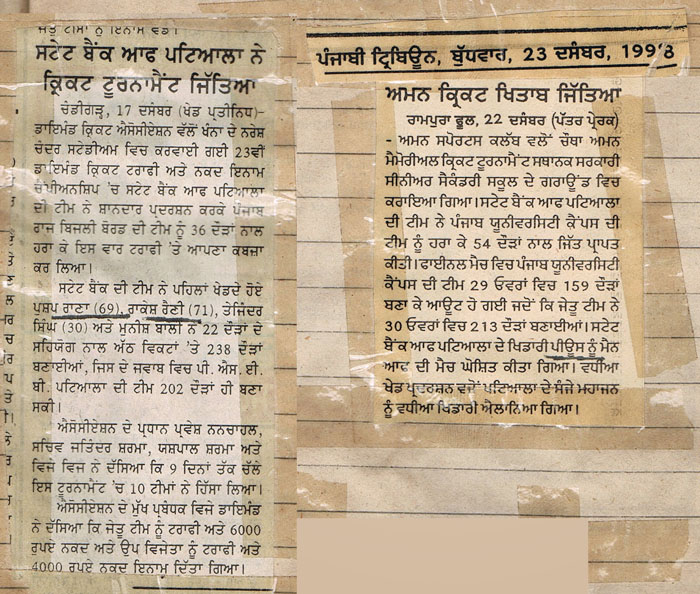 ਜੇਤੂ ਟੀਮਾਂ ਨੂੰ ਇਨਾਮ ਵੰਡੇ।
ਸਟੇਟ ਬੈਂਕ ਆਫ ਪਟਿਆਲਾ ਨੇ
ਕ੍ਰਿਕਟ ਟੂਰਨਾਮੈਂਟ ਜਿੱਤਿਆ
ਚੰਡੀਗੜ੍ਹ, 17 ਦਸੰਬਰ (ਖੇਡ ਪ੍ਰਤੀਨਿਧ)-
ਡਾਇਮੰਡ ਕ੍ਰਿਕਟ ਐਸੋਸੀਏਸ਼ਨ ਵੱਲੋਂ ਖੰਨਾ ਦੇ ਨਰੇਸ਼
ਚੰਦਰ ਸਟੇਡੀਅਮ ਵਿਚ ਕਰਵਾਈ ਗਈ 23ਵੀਂ
ਡਾਇਮੰਡ ਕ੍ਰਿਕਟ ਟਰਾਫੀ ਅਤੇ ਨਕਦ ਇਨਾਮ
ਚੈਂਪੀਅਨਸ਼ਿਪ 'ਚ ਸਟੇਟ ਬੈਂਕ ਆਫ ਪਟਿਆਲਾ
ਦੀ ਟੀਮ ਨੇ ਸ਼ਾਨਦਾਰ ਪ੍ਰਦਰਸ਼ਨ ਕਰਕੇ ਪੰਜਾਬ
ਰਾਜ ਬਿਜਲੀ ਬੋਰਡ ਦੀ ਟੀਮ ਨੂੰ 36 ਦੌੜਾਂ ਨਾਲ
ਹਰਾ ਕੇ ਇਸ ਵਾਰ ਟਰਾਫੀ 'ਤੇ ਆਪਣਾ ਕਬਜ਼ਾ
ਕਰ ਲਿਆ।
ਸਟੇਟ ਬੈਂਕ ਦੀ ਟੀਮ ਨੇ ਪਹਿਲਾਂ ਖੇਡਦੇ ਹੋਏ
ਪੁਸ਼ਪ ਰਾਣਾ (69), ਰਾਕੇਸ਼ ਰੈਣੀ (71), ਤੇਜਿੰਦਰ
ਸਿੰਘ (30) ਅਤੇ ਮੁਨੀਸ਼ ਬਾਲੀ ਨੇ 22 ਦੌੜਾਂ ਦੇ
ਸਹਿਯੋਗ ਨਾਲ ਅੱਠ ਵਿਕਟਾਂ 'ਤੇ 238 ਦੌੜਾਂ
ਬਣਾਈਆਂ, ਜਿਸ ਦੇ ਜਵਾਬ ਵਿਚ ਪੀ. ਐਸ. ਈ.
ਬੀ. ਪਟਿਆਲਾ ਦੀ ਟੀਮ 202 ਦੌੜਾਂ ਹੀ ਬਣਾ
ਸਕੀ।
ਐਸੋਸੀਏਸ਼ਨ ਦੇ ਪ੍ਰਧਾਨ ਪ੍ਰਵੇਸ਼ ਨਨਚਾਹਲ,
ਸਚਿਵ ਜਤਿੰਦਰ ਸ਼ਰਮਾ, ਯਸ਼ਪਾਲ ਸ਼ਰਮਾ ਅਤੇ
ਵਿਜੇ ਵਿਜ ਨੇ ਦੱਸਿਆ ਕਿ 9 ਦਿਨਾਂ ਤੱਕ ਚੱਲੇ
ਇਸ ਟੂਰਨਾਮੈਂਟ 'ਚ 10 ਟੀਮਾਂ ਨੇ ਹਿੱਸਾ ਲਿਆ।
ਐਸੋਸੀਏਸ਼ਨ ਦੇ ਮੁੱਖ ਪ੍ਰਬੰਧਕ ਵਿਜੇ ਡਾਇਮੰਡ
ਨੇ ਦੱਸਿਆ ਕਿ ਜੇਤੂ ਟੀਮ ਨੂੰ ਟਰਾਫੀ ਅਤੇ 6000
ਰੁਪਏ ਨਕਦ ਅਤੇ ਉਪ ਵਿਜੇਤਾ ਨੂੰ ਟਰਾਫੀ ਅਤੇ
4000 ਰੁਪਏ ਨਕਦ ਇਨਾਮ ਦਿੱਤਾ ਗਿਆ।
ਪੰਜਾਬੀ ਟ੍ਰਿਬਿਊਨ, ਬੁੱਧਵਾਰ, 23 ਦਸੰਬਰ, 1998
ਅਮਨ ਕ੍ਰਿਕਟ ਖਿਤਾਬ ਜਿੱਤਿਆ
ਰਾਮਪੁਰਾ ਫੂਲ, 22 ਦਸੰਬਰ (ਪੱਤਰ ਪ੍ਰੇਰਕ)
- ਅਮਨ ਸਪੋਰਟਸ ਕਲੱਬ ਵਲੋਂ ਚੌਥਾ ਅਮਨ
ਮੈਮੋਰੀਅਲ ਕ੍ਰਿਕਟ ਟੂਰਨਾਮੈਂਟ ਸਥਾਨਕ ਸਰਕਾਰੀ
ਸੀਨੀਅਰ ਸੈਕੰਡਰੀ ਸਕੂਲ ਦੇ ਗਰਾਊਂਡ ਵਿਚ
ਕਰਾਇਆ ਗਿਆ। ਸਟੇਟ ਬੈਂਕ ਆਫ ਪਟਿਆਲਾ
ਦੀ ਟੀਮ ਨੇ ਪੰਜਾਬ ਯੂਨੀਵਰਸਿਟੀ ਕੈਂਪਸ ਦੀ
ਟੀਮ ਨੂੰ ਹਰਾ ਕੇ 54 ਦੌੜਾਂ ਨਾਲ ਜਿੱਤ ਪ੍ਰਾਪਤ
ਕੀਤੀ। ਫਾਈਨਲ ਮੈਚ ਵਿਚ ਪੰਜਾਬ ਯੂਨੀਵਰਸਿਟੀ
ਕੈਂਪਸ ਦੀ ਟੀਮ 29 ਓਵਰਾਂ ਵਿਚ 159 ਦੌੜਾਂ
ਬਣਾ ਕੇ ਆਊਟ ਹੋ ਗਈ ਜਦੋਂ ਕਿ ਜੇਤੂ ਟੀਮ ਨੇ
30 ਓਵਰਾਂ ਵਿਚ 213 ਦੌੜਾਂ ਬਣਾਈਆਂ। ਸਟੇਟ
ਬੈਂਕ ਆਫ ਪਟਿਆਲਾ ਦੇ ਖਿਡਾਰੀ ਪੀਊਸ਼ ਨੂੰ ਮੈਨ
ਆਫ ਦੀ ਮੈਚ ਘੋਸ਼ਿਤ ਕੀਤਾ ਗਿਆ। ਵਧੀਆ
ਖੇਡ ਪ੍ਰਦਰਸ਼ਨ ਵਜੋਂ ਪਟਿਆਲਾ ਦੇ ਸੰਜੇ ਮਹਾਜਨ
ਨੂੰ ਵਧੀਆ ਖਿਡਾਰੀ ਐਲਾਨਿਆ ਗਿਆ।